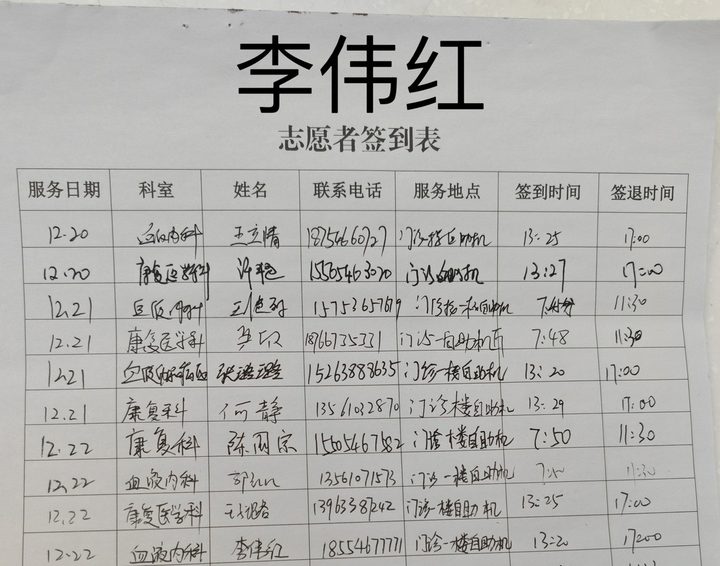 李伟红
志愿者签到表
服务日期 科室 姓名 联系电话 服务地点 签到时间 签退时间
12.20 血液内科 王立情 18754660727 门诊 自助机 13:25 17:00
12.20 康复医学科 许艳 15565463020 门诊自助机 13:27 17:00
12.21 血液内科 15753657619 门诊 一楼自助机 11:30
12.21 康复医学科 18766735331 门诊一 自助机 7:48 11:30
12.21 血液内科 张 15263888635 门诊一楼自助机 13:20 17:00
12.21 康复科 何静 13561032870 门诊楼自助机 13:29 17:00
12.22 康复科 陈丽宗 15505467582 门诊楼自助机 7:50 11:30
12.22 血液内科 郭 13561071573 门诊一楼自助机 7:50 11:30
12.22 康复医学科 13963387242 门诊一楼自助机 13:25 17:00
12.22 血液内科 李伟红 18554677771 门诊一楼自助机 13:20 17:00